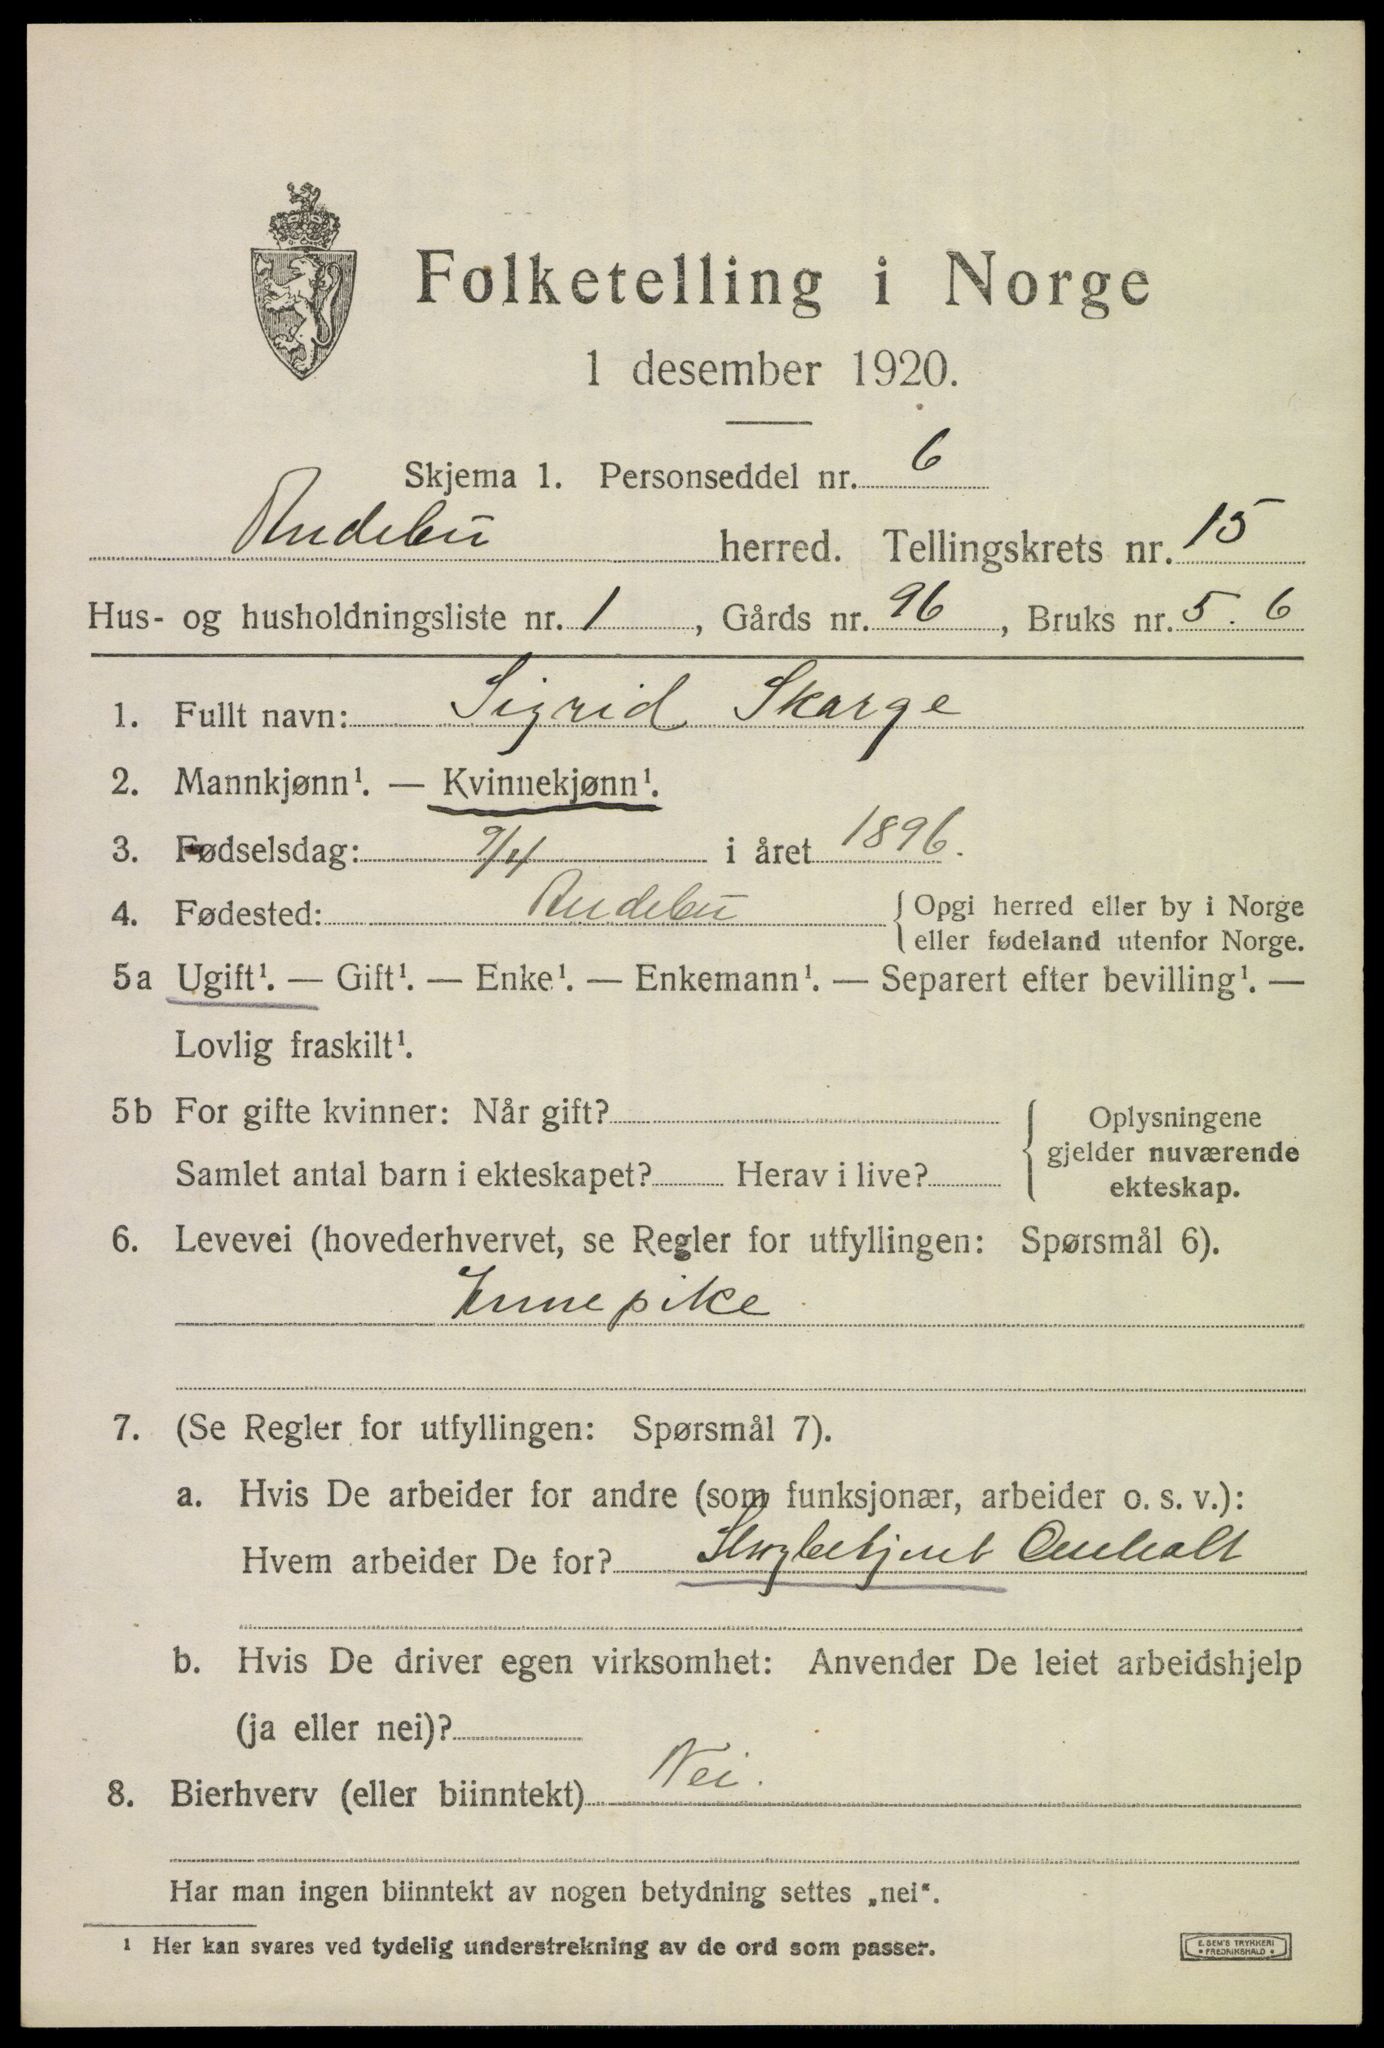 Folketelling i Norge
1 desember 1920.
Skjema 1. Personseddel nr. 6
Andebu herred. Tellingskrets nr. 15
Hus- og husholdningsliste nr. 1, Gårds nr. 96, Bruks nr. 5. 6
1. Fullt navn: Sigrid Skarge
2. Mannkjønn¹. — Kvinnekjønn¹.
3. Fødselsdag: 9/4 i året 1896.
4. Fødested: Andebu { Opgi herred eller by i Norge
eller fødeland utenfor Norge.
5a Ugift¹. — Gift¹. — Enke¹. — Enkemann¹. — Separert efter bevilling¹. —
Lovlig fraskilt¹.
5b For gifte kvinner: Når gift? { Oplysningene
gjelder nuværende
Samlet antal barn i ekteskapet? Herav i live?
ekteskap.
6. Levevei (hovederhvervet, se Regler for utfyllingen: Spørsmål 6).
Innepike
7. (Se Regler for utfyllingen: Spørsmål 7).
a. Hvis De arbeider for andre (som funksjonær, arbeider o. s. v.):
Hvem arbeider De for?
b. Hvis De driver egen virksomhet: Anvender De leiet arbeidshjelp
(ja eller nei)?
8. Bierhverv (eller biinntekt) Nei.
Har man ingen biinntekt av nogen betydning settes „nei“.
¹ Her kan svares ved tydelig understrekning av de ord som passer.
E. SEM'S TRYKKERI
• FREDRIKSHALD •